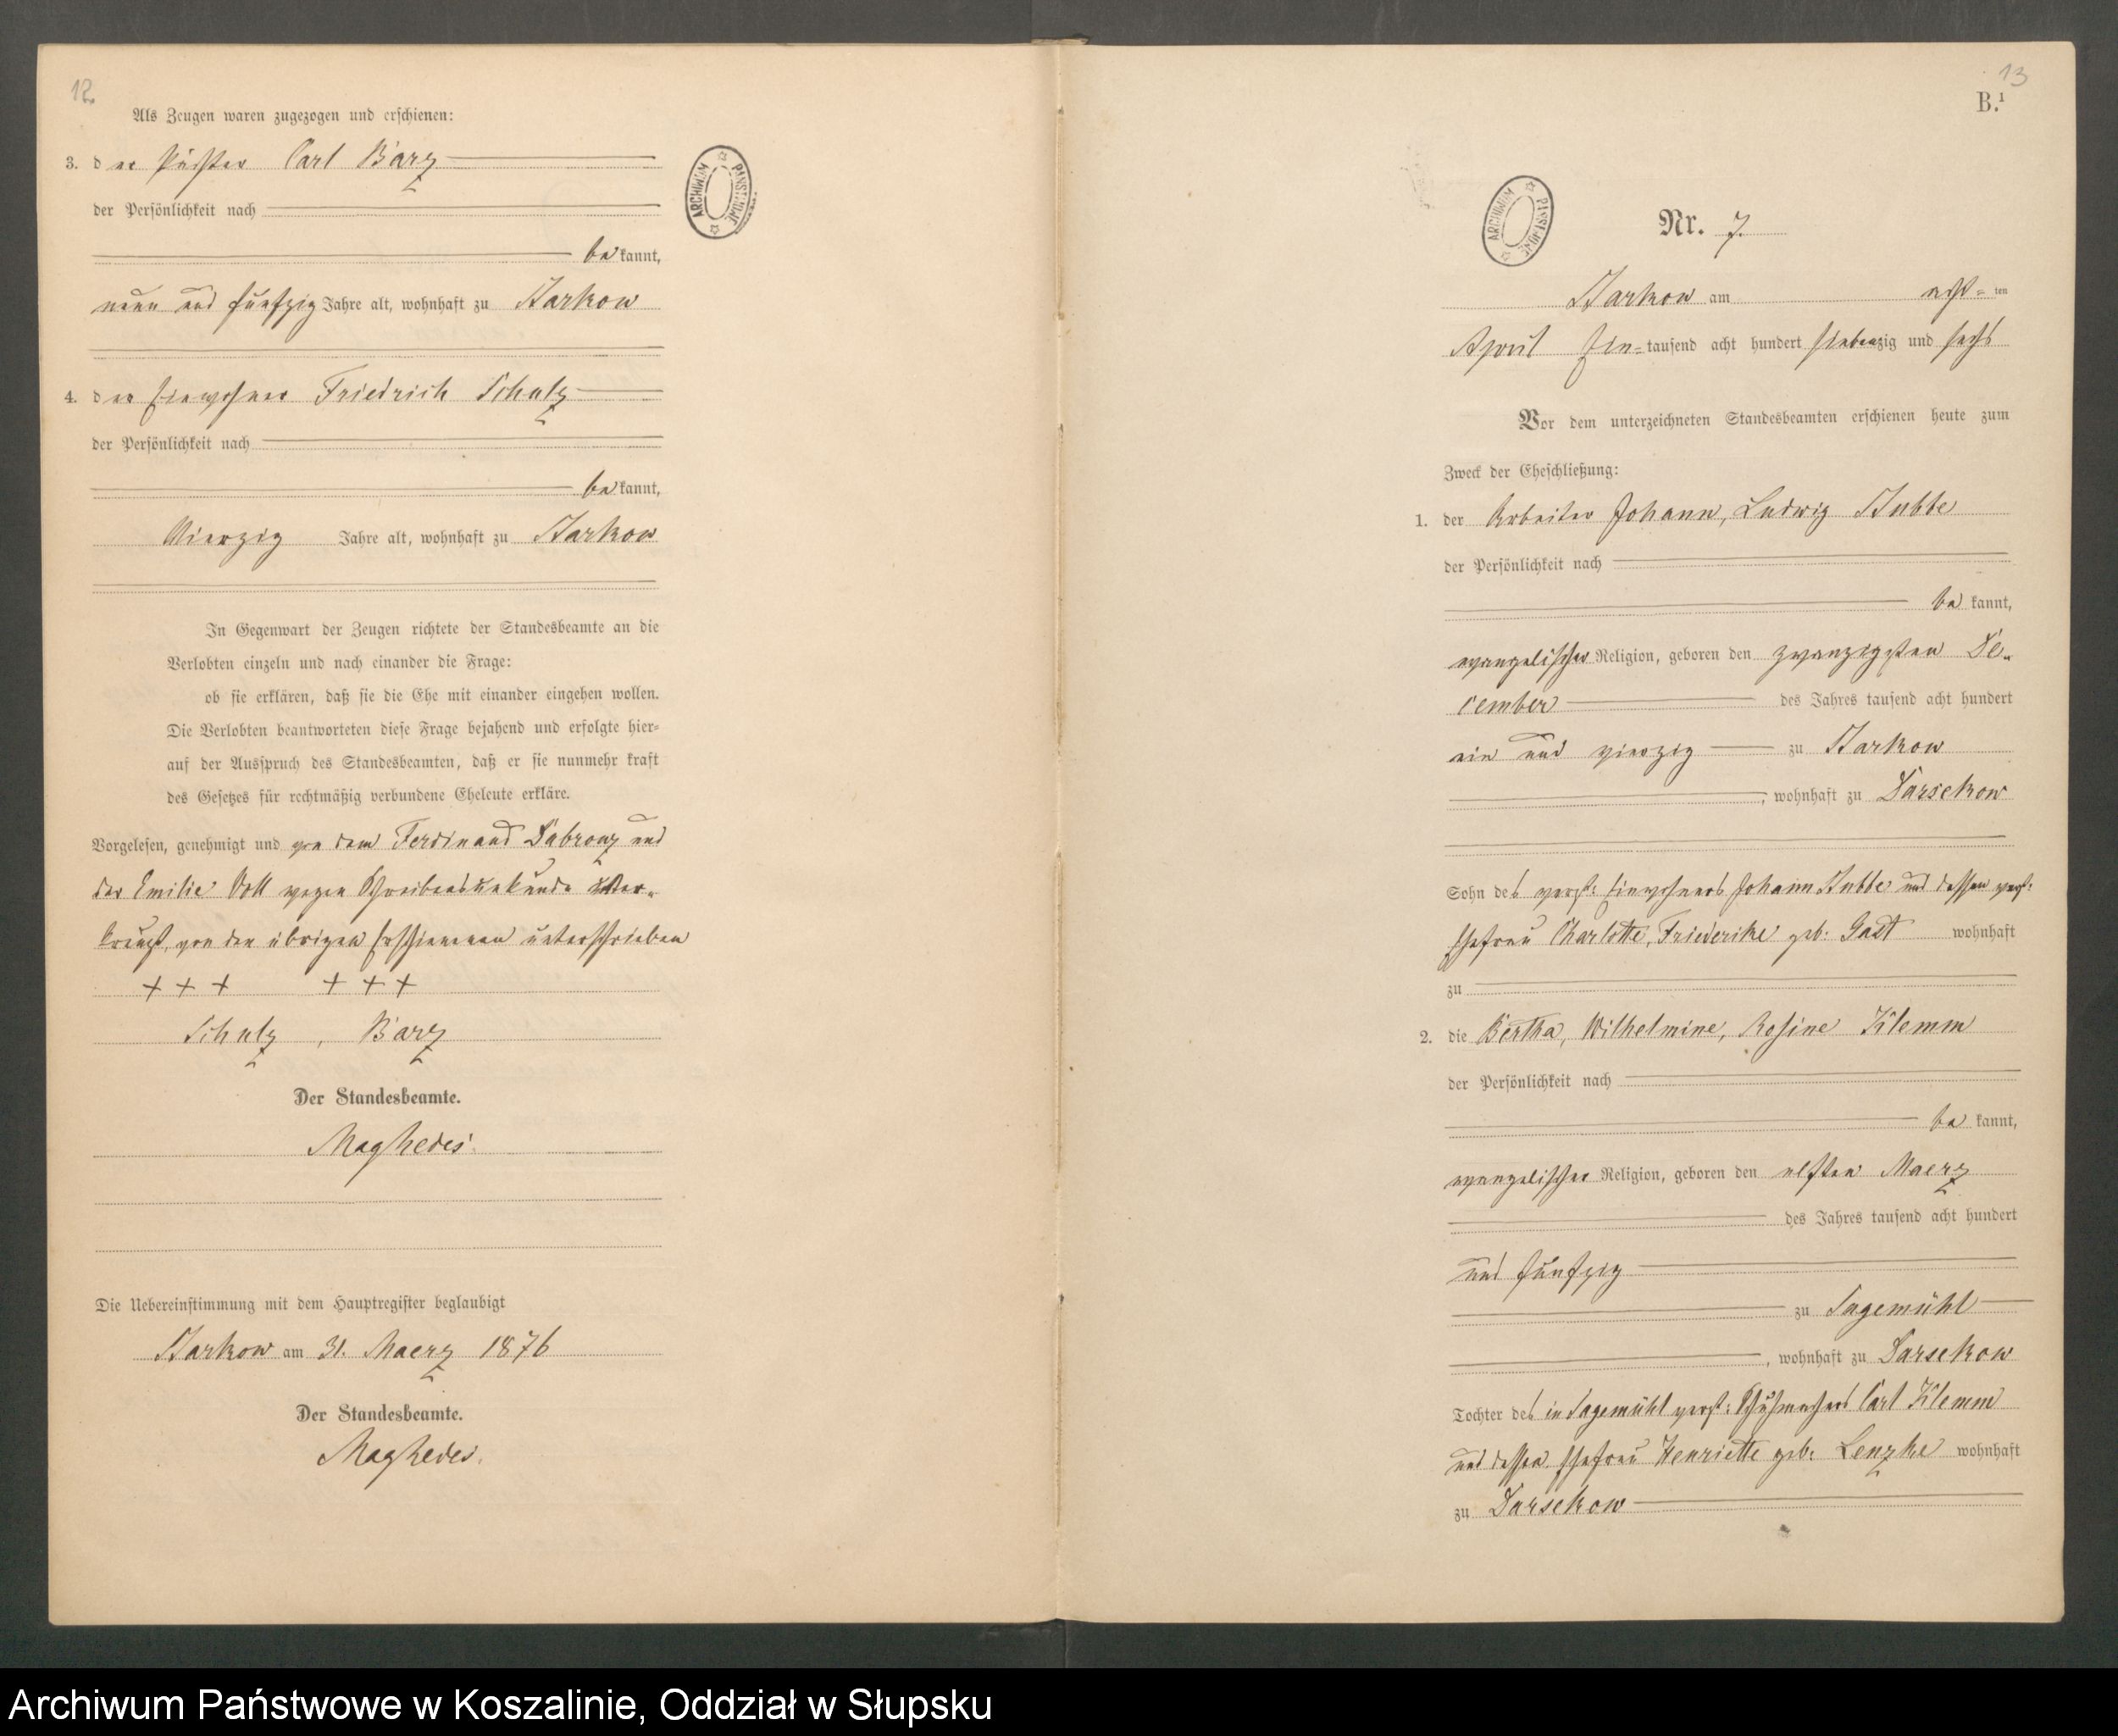 12.
Als Zeugen waren zugezogen und erschienen:
3. der Küster Carl Barz
der Persönlichkeit nach
bekannt,
neun und fünfzig Jahre alt, wohnhaft zu Starkow
4. der Einwohner Friedrich Schulz
der Persönlichkeit nach
bekannt,
Vierzig Jahre alt, wohnhaft zu Starkow
In Gegenwart der Zeugen richtete der Standesbeamte an die
Verlobten einzeln und nach einander die Frage:
ob sie erklären, daß sie die Ehe mit einander eingehen wollen.
Die Verlobten beantworteten diese Frage bejahend und erfolgte hier=
auf der Ausspruch des Standesbeamten, daß er sie nunmehr kraft
des Gesetzes für rechtmäßig verbundene Eheleute erkläre.
Vorgelesen, genehmigt und von dem Ferdinand und
der Emilie Voll wegen Schreibensunkunde unter-
kreuzt, von den übrigen Erschienenen unterschrieben
+ + + + + +
Schulz, Barz
Der Standesbeamte.
Die Uebereinstimmung mit dem Hauptregister beglaubigt
Starkow am 31. Maerz 1876
Der Standesbeamte.
ARCHIWUM PAŃSTWOWE
13
B.¹
ARCHIWUM PAŃSTWOWE
Nr. 7.
Starkow am acht=ten
April Ein=tausend acht hundert siebenzig und sechs
Vor dem unterzeichneten Standesbeamten erschienen heute zum
Zweck der Eheschließung:
1. der Arbeiter Johann, Ludwig Stubbe
der Persönlichkeit nach
bekannt,
evangelischer Religion, geboren den zwanzigsten De-
cember des Jahres tausend acht hundert
ein und vierzig zu Starkow
, wohnhaft zu Darsekow
Sohn des verst: Einwohners Johann Stubbe und dessen verst:
Ehefrau Charlotte, Friederike geb: Gast wohnhaft
zu
2. die Bertha, Wilhelmine, Rosine Klemm
der Persönlichkeit nach
bekannt,
evangelischer Religion, geboren den elften Maerz
des Jahres tausend acht hundert
und fünfzig
zu Sagemühl
, wohnhaft zu Darsekow
Tochter des in Sagemühl verst: Schuhmachers Carl Klemm
und dessen Ehefrau Henriette geb: Lenzke wohnhaft
zu Darsekow
Archiwum Państwowe w Koszalinie, Oddział w Słupsku